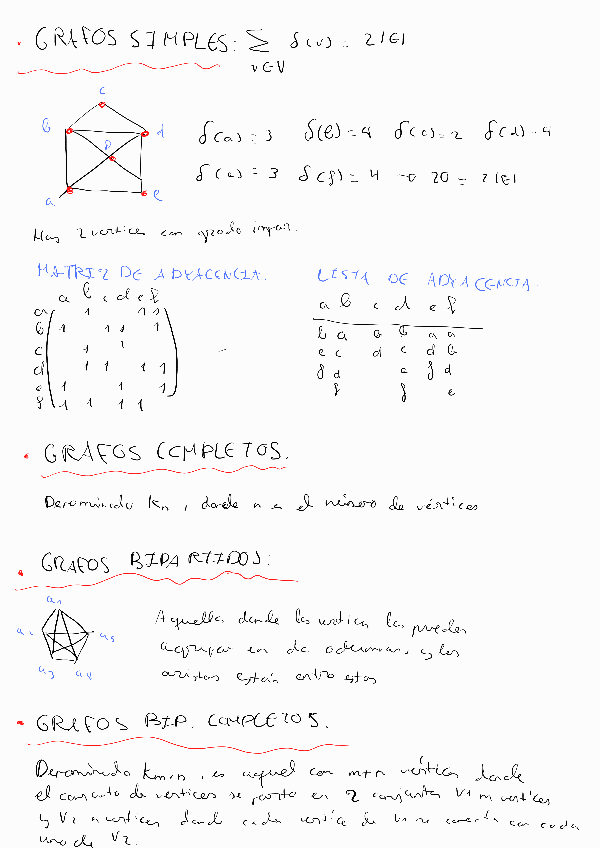 · GRAFOS SIMPLES: ∑ δ(v) = 2|E|
v∈V
c
b d
f
a e
δ(a) = 3 δ(b) = 4 δ(c) = 2 δ(d) = 4
δ(e) = 3 δ(f) = 4 → 20 = 2|E|
Hay 2 vertices con grado impar.
MATRIZ DE ADYACENCIA. LISTA DE ADYACENCIA.
a b c d e f a b c d e f
a 1 1 1
b 1 1 1 1
c 1 1
d 1 1 1 1
e 1 1 1
f 1 1 1 1
b a b b a a
e c d c d b
f d e f d
f f e
· GRAFOS COMPLETOS.
Denominado Kn, donde n es el número de vértices
· GRAFOS BIPARTIDOS:
a1
a2 a5
a3 a4
Aquellos donde los vertices los puedes
agrupar en dos y las
aristas están entre estos
· GRAFOS BIP. COMPLETOS.
Denominado Km,n, es aquel con m+n vértices donde
el conjunto de vertices se parte en 2 conjuntos V1 m vertices
y V2 n vertices donde cada vertice de V1 se conecta con cada
uno de V2.